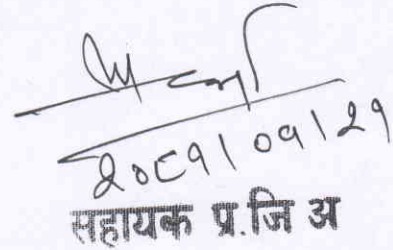 २०८१।०१।२१
सहायक प्र.जि अ